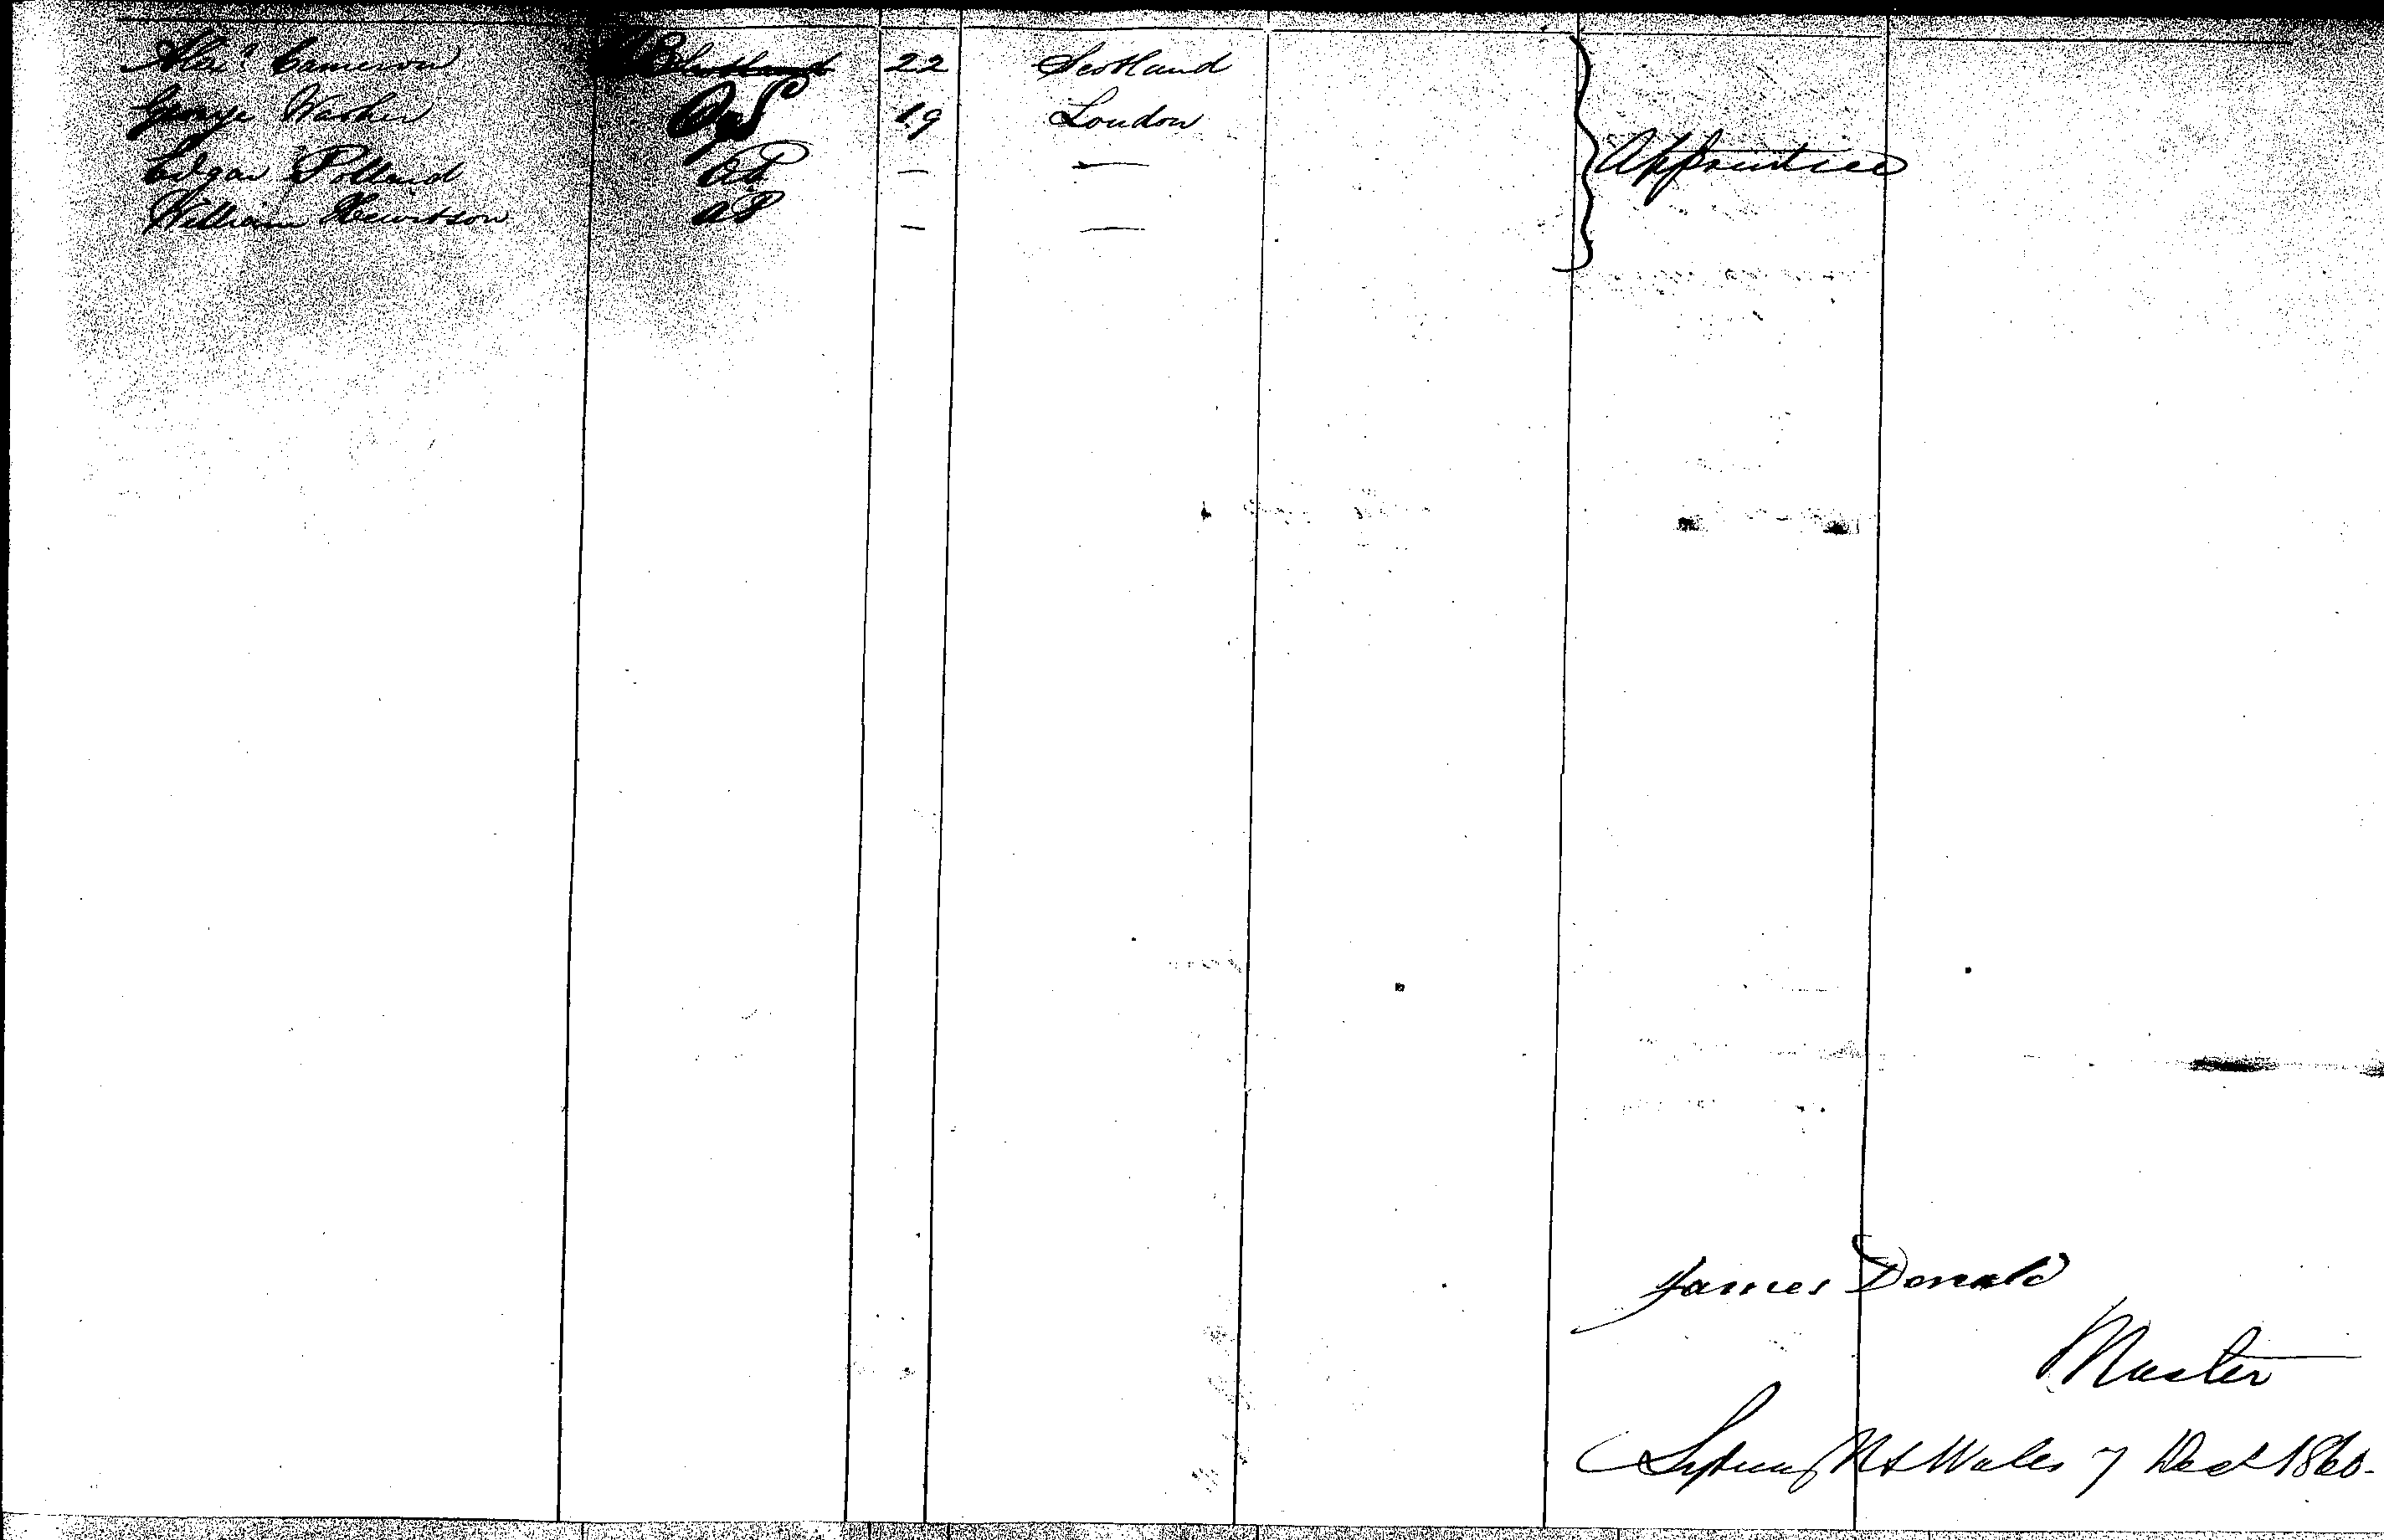 Alexr Cameron AB 22 Scotland
George Washer OS 19 London
Edgar Pollard AP — —
William Hewitson AP — —
Apprentices
James Donald
Master
Sydney N S Wales 7 Decr 1860.